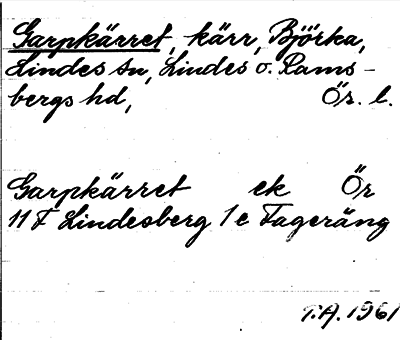 Garpkärret, kärr, Björka,
Lindes sn, Lindes o. Rams-
bergs hd, Ör. l.
Garpkärret ek Ör
11 F Lindesberg 1 e Fageräng
T.A. 1961